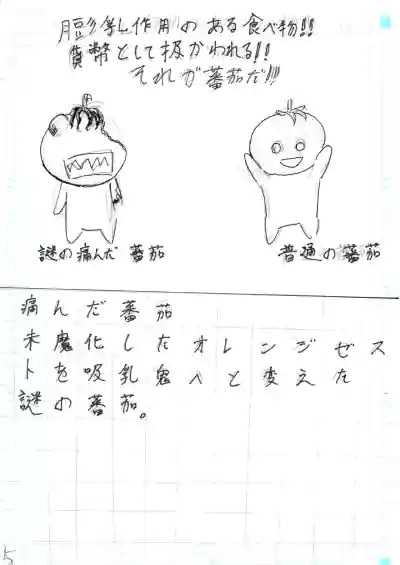 膨乳作用のある食べ物!!
貨幣として扱かわれる!!
それが蕃茄だ!!!
謎の痛んだ蕃茄
普通の蕃茄
痛んだ蕃茄
未魔化したオレンジゼス
トを吸乳鬼へと変えた
謎の蕃茄。
5